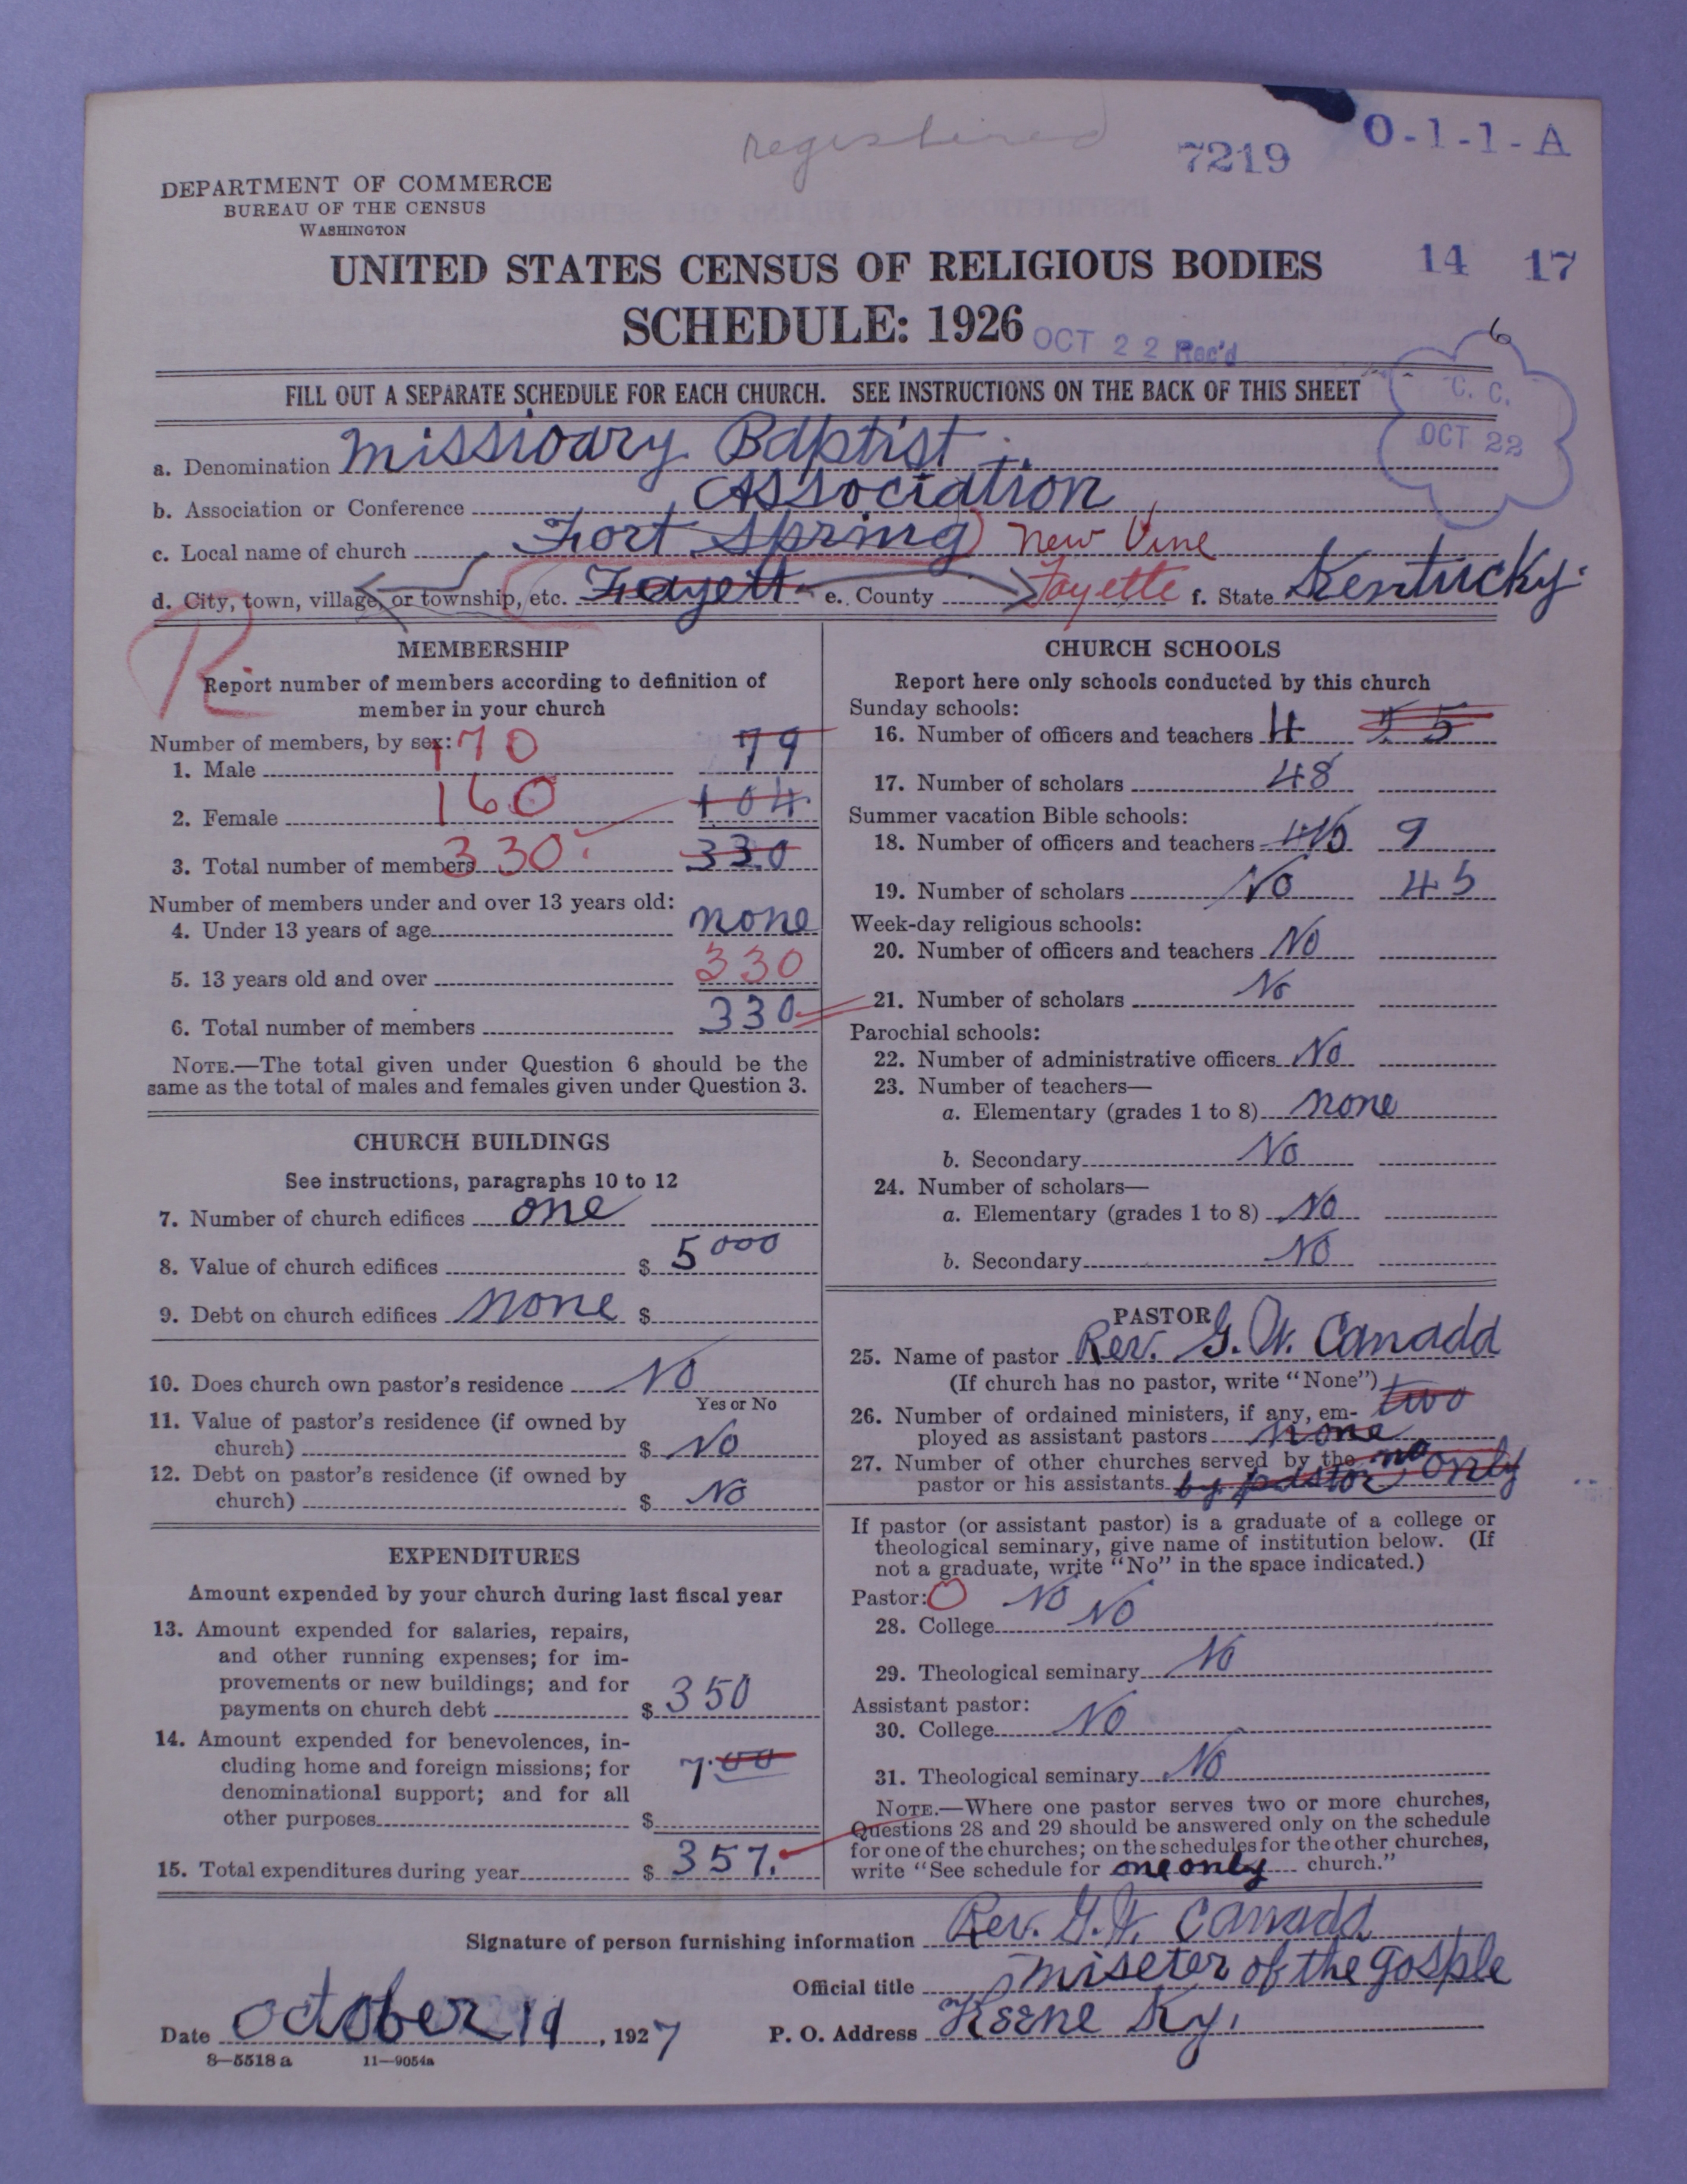 registered
7219
O-1-1-A
DEPARTMENT OF COMMERCE
BUREAU OF THE CENSUS
WASHINGTON
UNITED STATES CENSUS OF RELIGIOUS BODIES
14 17
SCHEDULE: 1926
OCT 22 Rec'd
6
FILL OUT A SEPARATE SCHEDULE FOR EACH CHURCH. SEE INSTRUCTIONS ON THE BACK OF THIS SHEET
C. C.
OCT 22
a. Denomination Missioary Baptist
b. Association or Conference Association
c. Local name of church Fort Spring) New Vine
d. City, town, village, or township, etc. Fayett e. County Fayette f. State Kentucky.
R
MEMBERSHIP
Report number of members according to definition of
member in your church
Number of members, by sex:
1. Male 170 79
2. Female 160 104
3. Total number of members 330 330
Number of members under and over 13 years old:
4. Under 13 years of age none
5. 13 years old and over 330
6. Total number of members 330
NOTE.—The total given under Question 6 should be the
same as the total of males and females given under Question 3.
CHURCH BUILDINGS
See instructions, paragraphs 10 to 12
7. Number of church edifices one
8. Value of church edifices $ 5000
9. Debt on church edifices none $
10. Does church own pastor's residence No
Yes or No
11. Value of pastor's residence (if owned by
church) $ No
12. Debt on pastor's residence (if owned by
church) $ No
EXPENDITURES
Amount expended by your church during last fiscal year
13. Amount expended for salaries, repairs,
and other running expenses; for im-
provements or new buildings; and for
payments on church debt $ 350
14. Amount expended for benevolences, in-
cluding home and foreign missions; for
denominational support; and for all
other purposes $ 7.00
15. Total expenditures during year $ 357.
CHURCH SCHOOLS
Report here only schools conducted by this church
Sunday schools:
16. Number of officers and teachers 4 5
17. Number of scholars 48
Summer vacation Bible schools:
18. Number of officers and teachers No 9
19. Number of scholars No 45
Week-day religious schools:
20. Number of officers and teachers No
21. Number of scholars No
Parochial schools:
22. Number of administrative officers No
23. Number of teachers—
a. Elementary (grades 1 to 8) none
b. Secondary No
24. Number of scholars—
a. Elementary (grades 1 to 8) No
b. Secondary No
PASTOR
25. Name of pastor Rev. G. W. Canadd
(If church has no pastor, write "None")
26. Number of ordained ministers, if any, em- two
ployed as assistant pastors none
27. Number of other churches served by the no only
pastor or his assistants by pastor
If pastor (or assistant pastor) is a graduate of a college or
theological seminary, give name of institution below. (If
not a graduate, write "No" in the space indicated.)
Pastor: O No
28. College No
29. Theological seminary No
Assistant pastor:
30. College No
31. Theological seminary No
NOTE.—Where one pastor serves two or more churches,
Questions 28 and 29 should be answered only on the schedule
for one of the churches; on the schedules for the other churches,
write "See schedule for one only church."
Signature of person furnishing information Rev. G. W. Canadd
Official title miseter of the gosple
Date October 19, 1927
P. O. Address Keene Ky.
8—5518 a 11—9054a